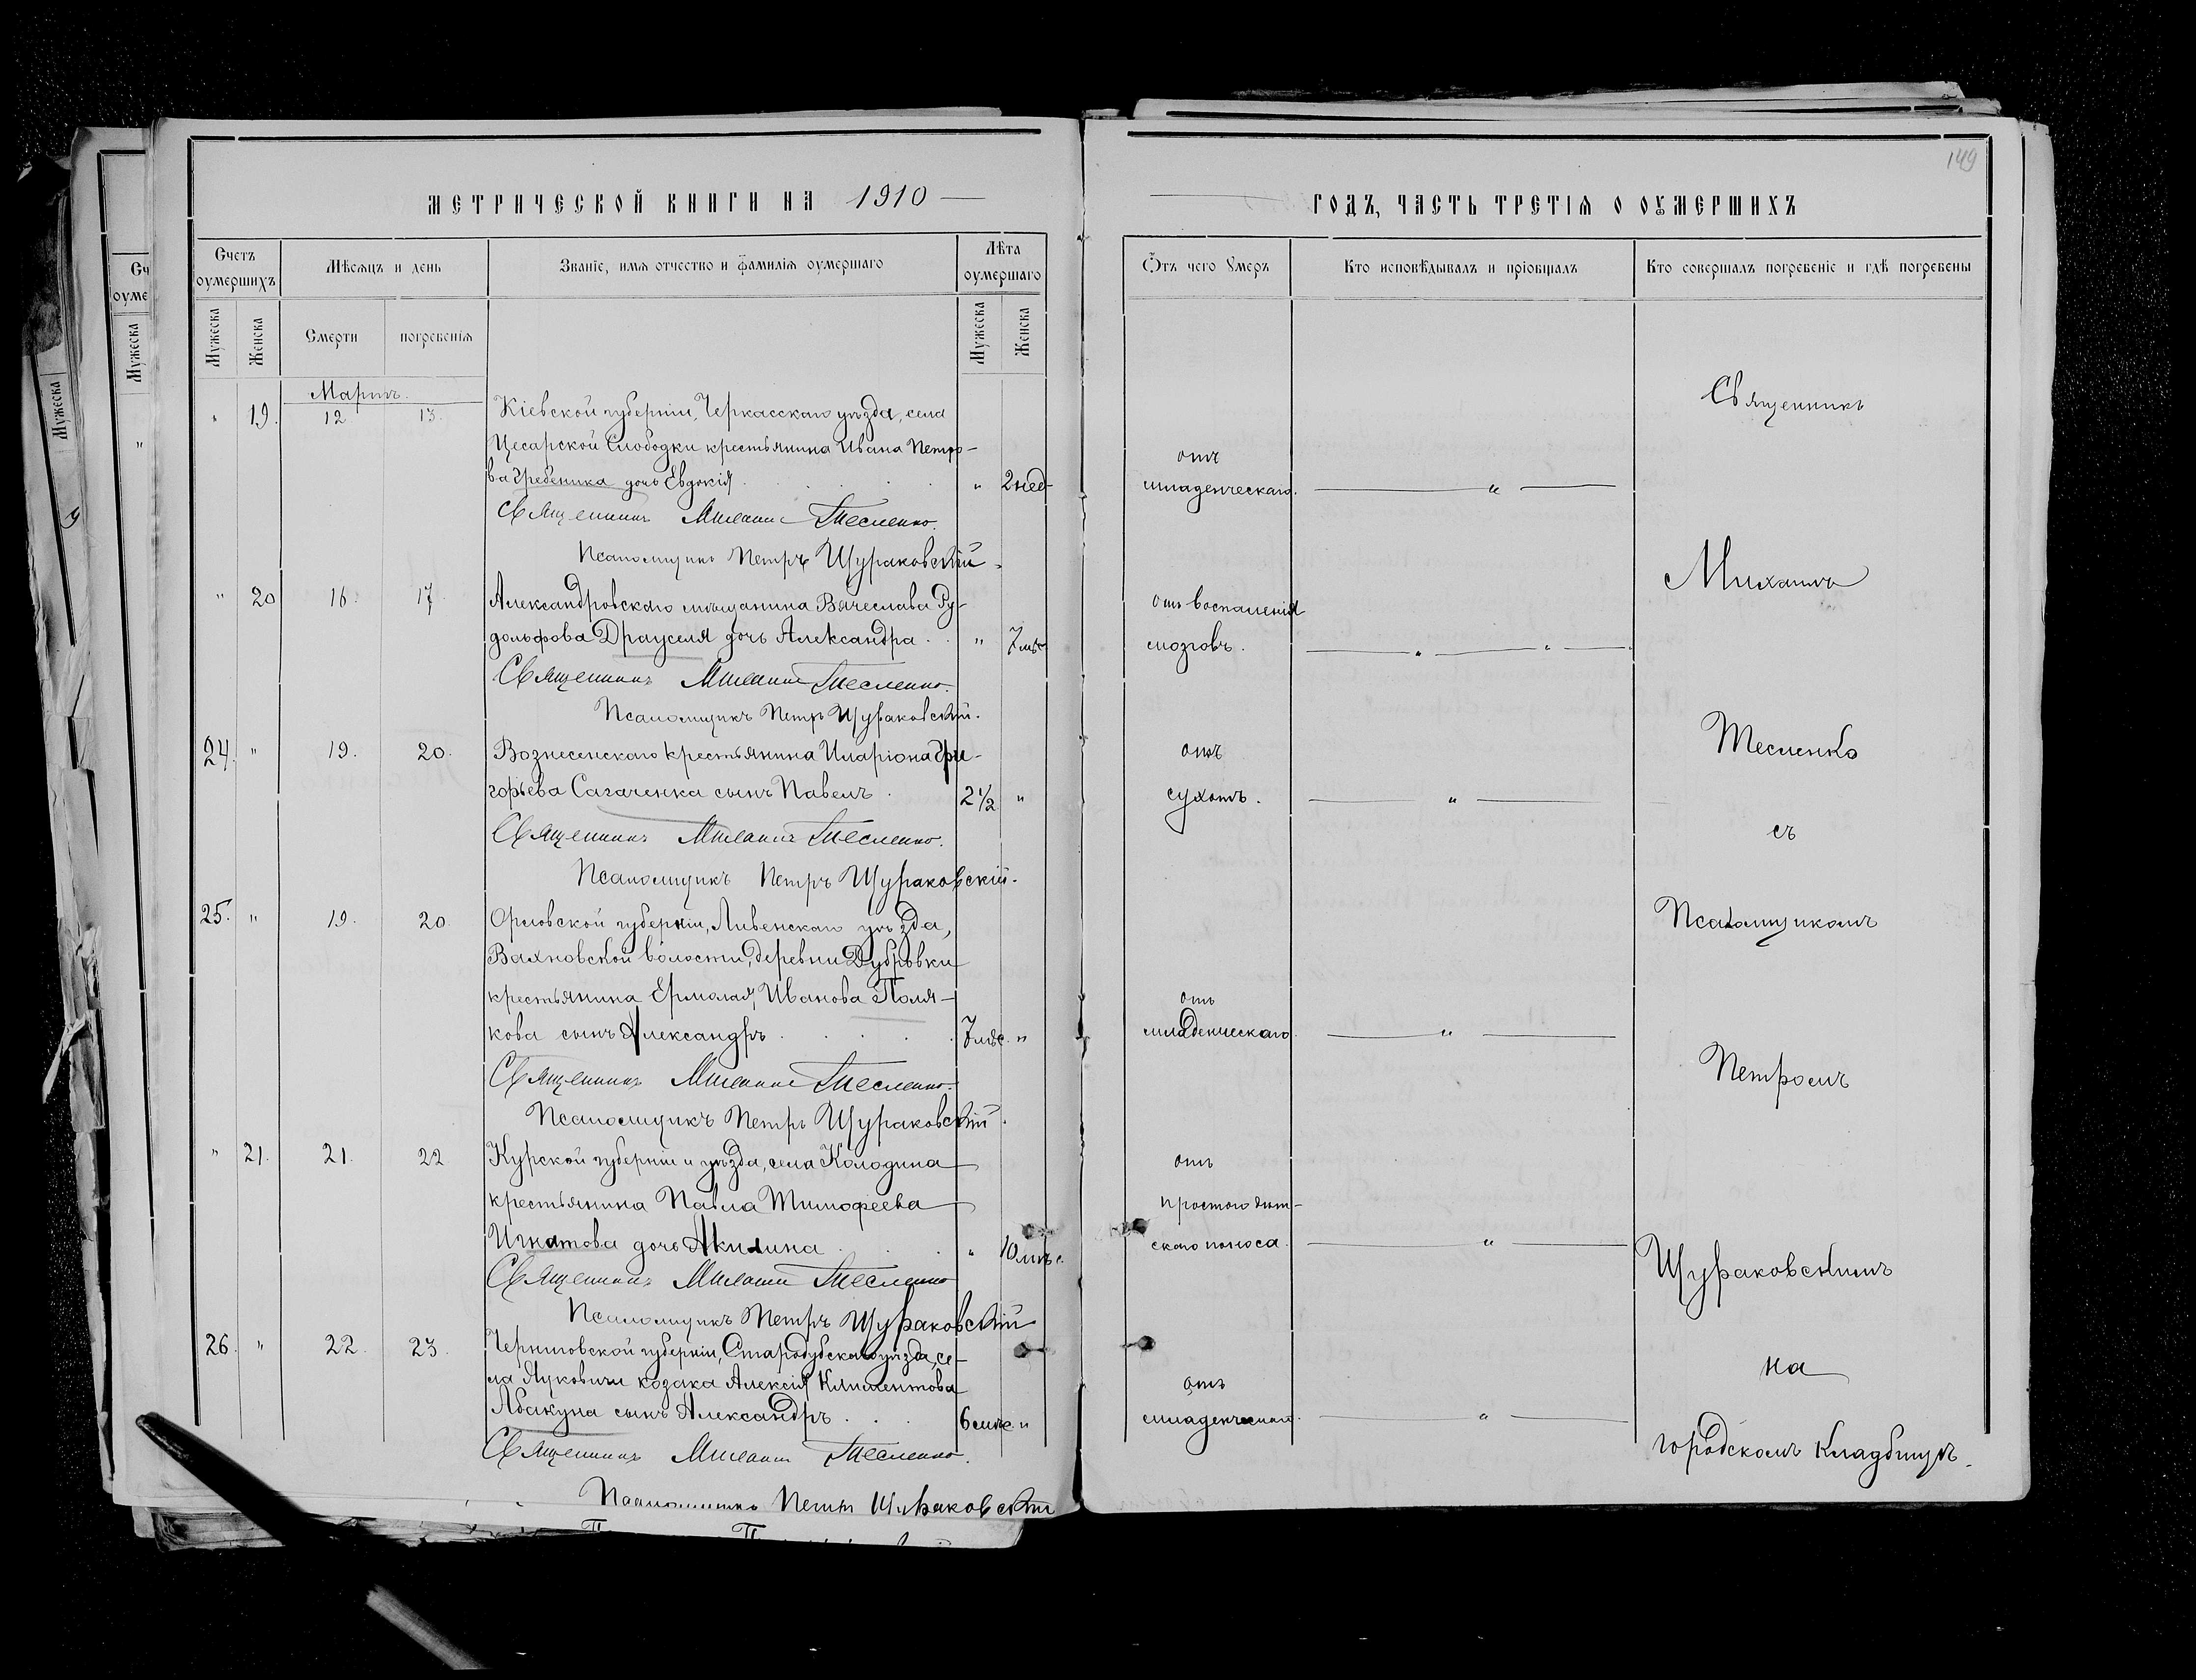 МЕТРИЧЕСКОЙ КНИГИ НА 1910
Счетъ оумершихъ
Мѣсяцъ и день
Званіе, имя отчество и фамилія оумершаго
Лѣта оумершаго
Мужеска
Женска
Смерти
погребенія
Мужеска
Женска
Мартъ.
" 19. 12 13. Кіевской губерніи, Черкасскаго уѣзда, села
Цесарской Слободки крестьянина Ивана Петро-
ва Гребеника дочь Евдокія " 2 нед
Священникъ Михаилъ Тесленко.
Псаломщикъ Петръ Щураковскій.
" 20 16. 17. Александровскаго мѣщанина Вячеслава Ру-
дольфова Драуселя дочь Александра " 7 мѣс
Священникъ Михаилъ Тесленко.
Псаломщикъ Петръ Щураковскій.
24. " 19. 20. Вознесенскаго крестьянина Иларіона Гри-
горьева Сагаченка сынъ Павелъ 2 1/2 "
Священникъ Михаилъ Тесленко.
Псаломщикъ Петръ Щураковскій.
25. " 19. 20. Орловской губерніи, Ливенскаго уѣзда,
Вахновской волости, деревни Дубровки
крестьянина Ермолая Иванова Поля-
кова сынъ Александръ 7 мѣс. "
Священникъ Михаилъ Тесленко.
Псаломщикъ Петръ Щураковскій.
" 21. 21. 22 Курской губерніи и уѣзда, села Колодина
крестьянина Павла Тимофеева
Игнатова дочь Акилина " 10 мѣс.
Священникъ Михаилъ Тесленко
Псаломщикъ Петръ Щураковскій
26. " 22. 23. Черниговской губерніи, Стародубскаго уѣзда, се-
ла Луковичи козака Алексія Климентова
Абакуна сынъ Александръ 6 мѣс "
Священникъ Михаилъ Тесленко.
Псаломщикъ Петръ Щураковскій
149
ГОДЪ, ЧАСТЬ ТРЕТІЯ О ОУМЕРШИХЪ
Отъ чего умеръ
Кто исповѣдывалъ и пріобщалъ
Кто совершалъ погребеніе и гдѣ погребены
отъ
младенческаго. "
отъ воспаленія
мозговъ. " "
отъ
сухотъ. "
отъ
младенческаго. "
отъ
простого дѣт-
скаго поноса. "
отъ
младенческаго. "
Священникъ
Михаилъ
Тесленко
съ
Псаломщикомъ
Петромъ
Щураковскимъ
на
городскомъ кладбищѣ.